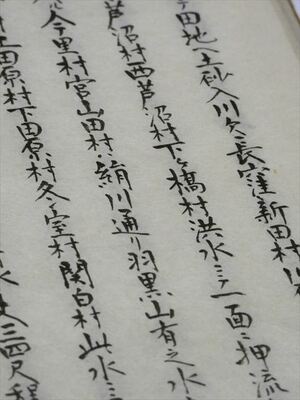 田地へ土砂入川欠長窪新田村
芦沼村西芦沼村下ケ橋村洪水ニテ一面ニ押流
今里村宮山田村ハ絹川通リ羽黒山有之水
上田原村下田原村冬室村関白村此水ニ
三四尺程